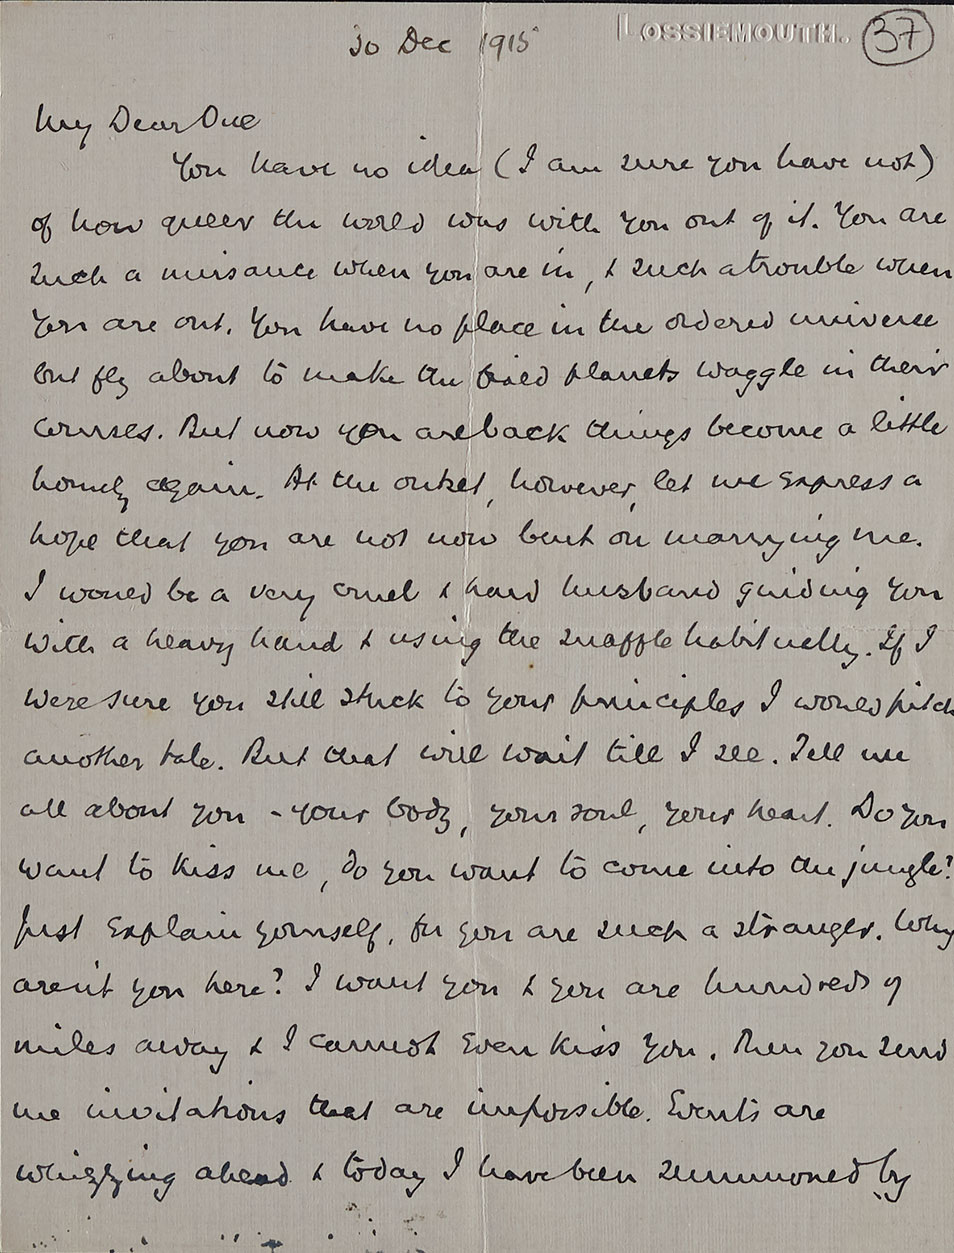 30 Dec 1915 LOSSIEMOUTH. 37
My Dear One
You have no idea (I am sure you have not)
of how queer the world was with you out of it. You are
such a nuisance when you are in, & such a trouble when
you are out. You have no place in the ordered universe
but fly about to make the fixed planets waggle in their
courses. But now you are back things become a little
homely again. At the outset, however, let me express a
hope that you are not now bent on marrying me.
I would be a very cruel & hard husband guiding you
with a heavy hand & using the snaffle habitually. If I
were sure you still stuck to your principles I would pitch
another tale. But that will wait till I see. Tell me
all about you - your body, your soul, your heart. Do you
want to kiss me, do you want to come into the jungle?
Just explain yourself, for you are such a stranger. Why
aren't you here? I want you & you are hundreds of
miles away & I cannot even kiss you. Then you send
me invitations that are impossible. Events are
whizzing ahead & today I have been summoned by